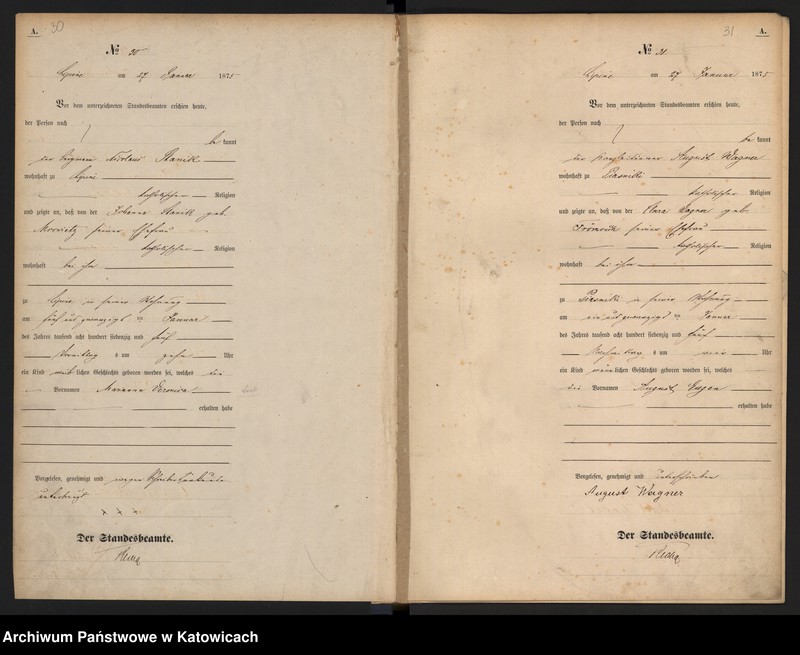 A. 30
№ 30
Lipine am 27 Januar 1875
Vor dem unterzeichneten Standesbeamten erschien heute,
der Person nach
be kannt
der Nicolaus Stanik
wohnhaft zu Lipine
katholischer Religion
und zeigte an, daß von der Johanna Stanik geb.
seiner Ehefrau
katholischer Religion
wohnhaft bei ihm
zu Lipine in seiner Wohnung
am fünf und zwanzigsten Januar
des Jahres tausend acht hundert siebenzig und fünf
Vormittag s um zehn Uhr
ein Kind weib lichen Geschlechts geboren worden sei, welches die
Vornamen Marianna Veronica
erhalten habe
Vorgelesen, genehmigt und wegen
x x x
Der Standesbeamte.
31 A.
№ 31.
Lipine am 27 Januar 1875
Vor dem unterzeichneten Standesbeamten erschien heute,
der Person nach
be kannt
der August Wagner
wohnhaft zu Piasniki
katholischer Religion
und zeigte an, daß von der Clara Wagner geb.
seiner Ehefrau
katholischer Religion
wohnhaft bei ihm
zu Piasniki in seiner Wohnung
am ein und zwanzigsten Januar
des Jahres tausend acht hundert siebenzig und fünf
Nachmittag s um vier Uhr
ein Kind männlichen Geschlechts geboren worden sei, welches
die Vornamen August, Eugen
erhalten habe
Vorgelesen, genehmigt und unterschrieben
August Wagner
Der Standesbeamte.
Archiwum Państwowe w Katowicach